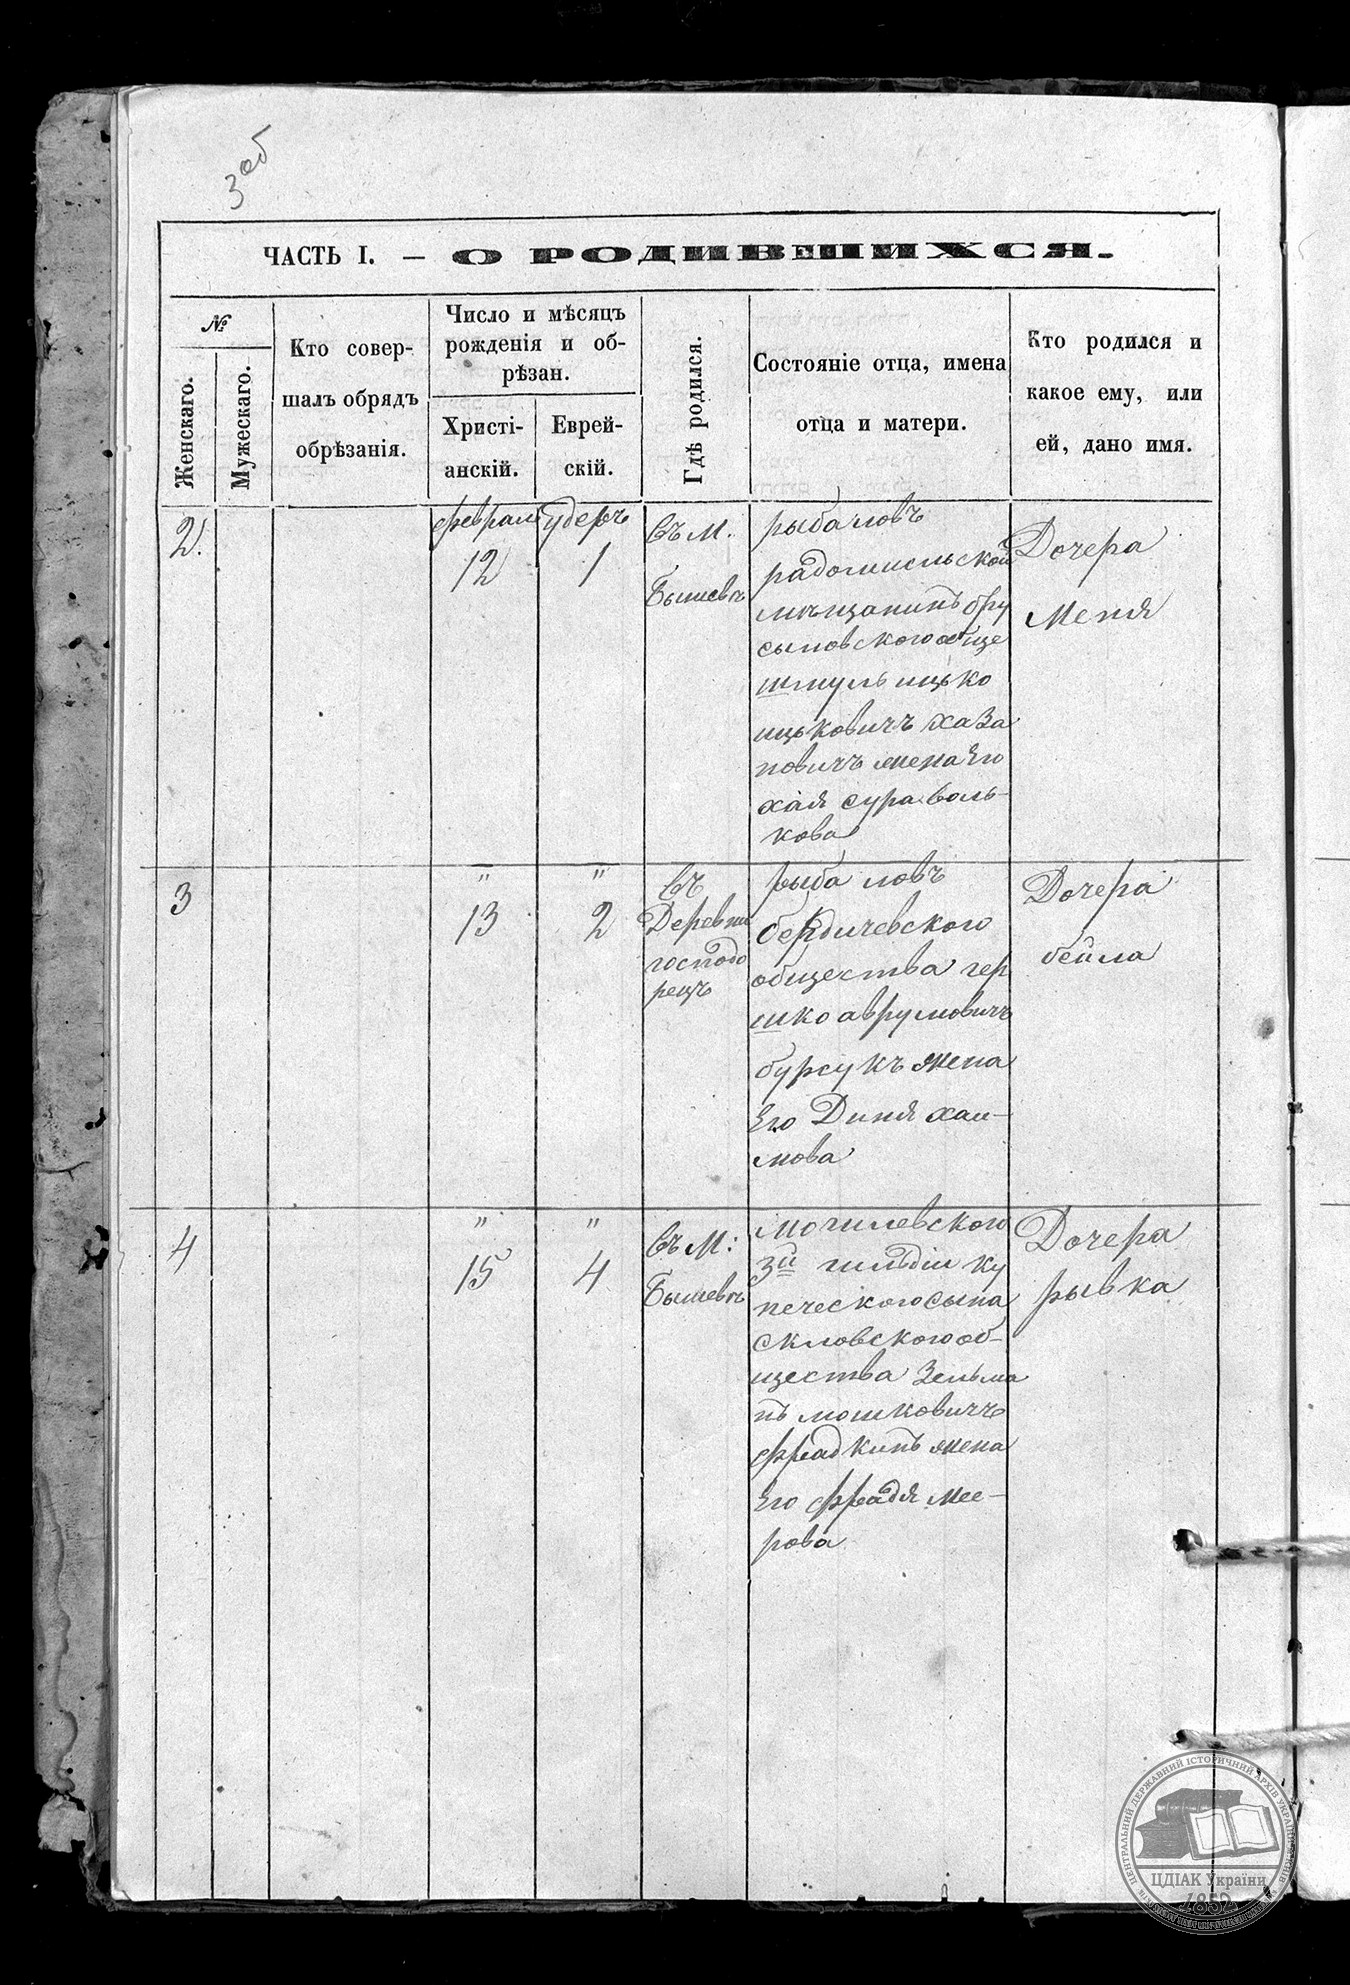 3об
ЧАСТЬ I. — О РОДИВШИХСЯ.
№
Женскаго.
Мужескаго.
Кто совер-
шалъ обрядъ
обрѣзанія.
Число и мѣсяцъ
рожденія и об-
рѣзан.
Христі-
анскій.
Еврей-
скій.
Гдѣ родился.
Состояніе отца, имена
отца и матери.
Кто родился и
какое ему, или
ей, дано имя.
2.
12
1
въ м.
Бышевъ
рыба ловъ
радомисльской
мѣщанинъ бру
силовского обще
шмуль ицько
ицьковичъ хаза
новичъ жена Его
хая сура воль-
кова
Дочера
Меня
3
" "
13
2
въ
Деревни
господо
рецъ
рыба ловъ
бердичевского
общества гер
шко аврумовичъ
бурсукъ жена
Его Диня хаи-
мова
Дочера
бейла
4
" "
15
4
въ м:
Бышевъ
могилевского
3й гильдіи ку
печеского сына
скловского об-
щества Зельма
нъ мошковичъ
фрадкинъ жена
Его фрадя мее-
рова
Дочера
рывка
ЦЕНТРАЛЬНИЙ ДЕРЖАВНИЙ ІСТОРИЧНИЙ АРХІВ УКРАЇНИ
ЦДІАК України
1852